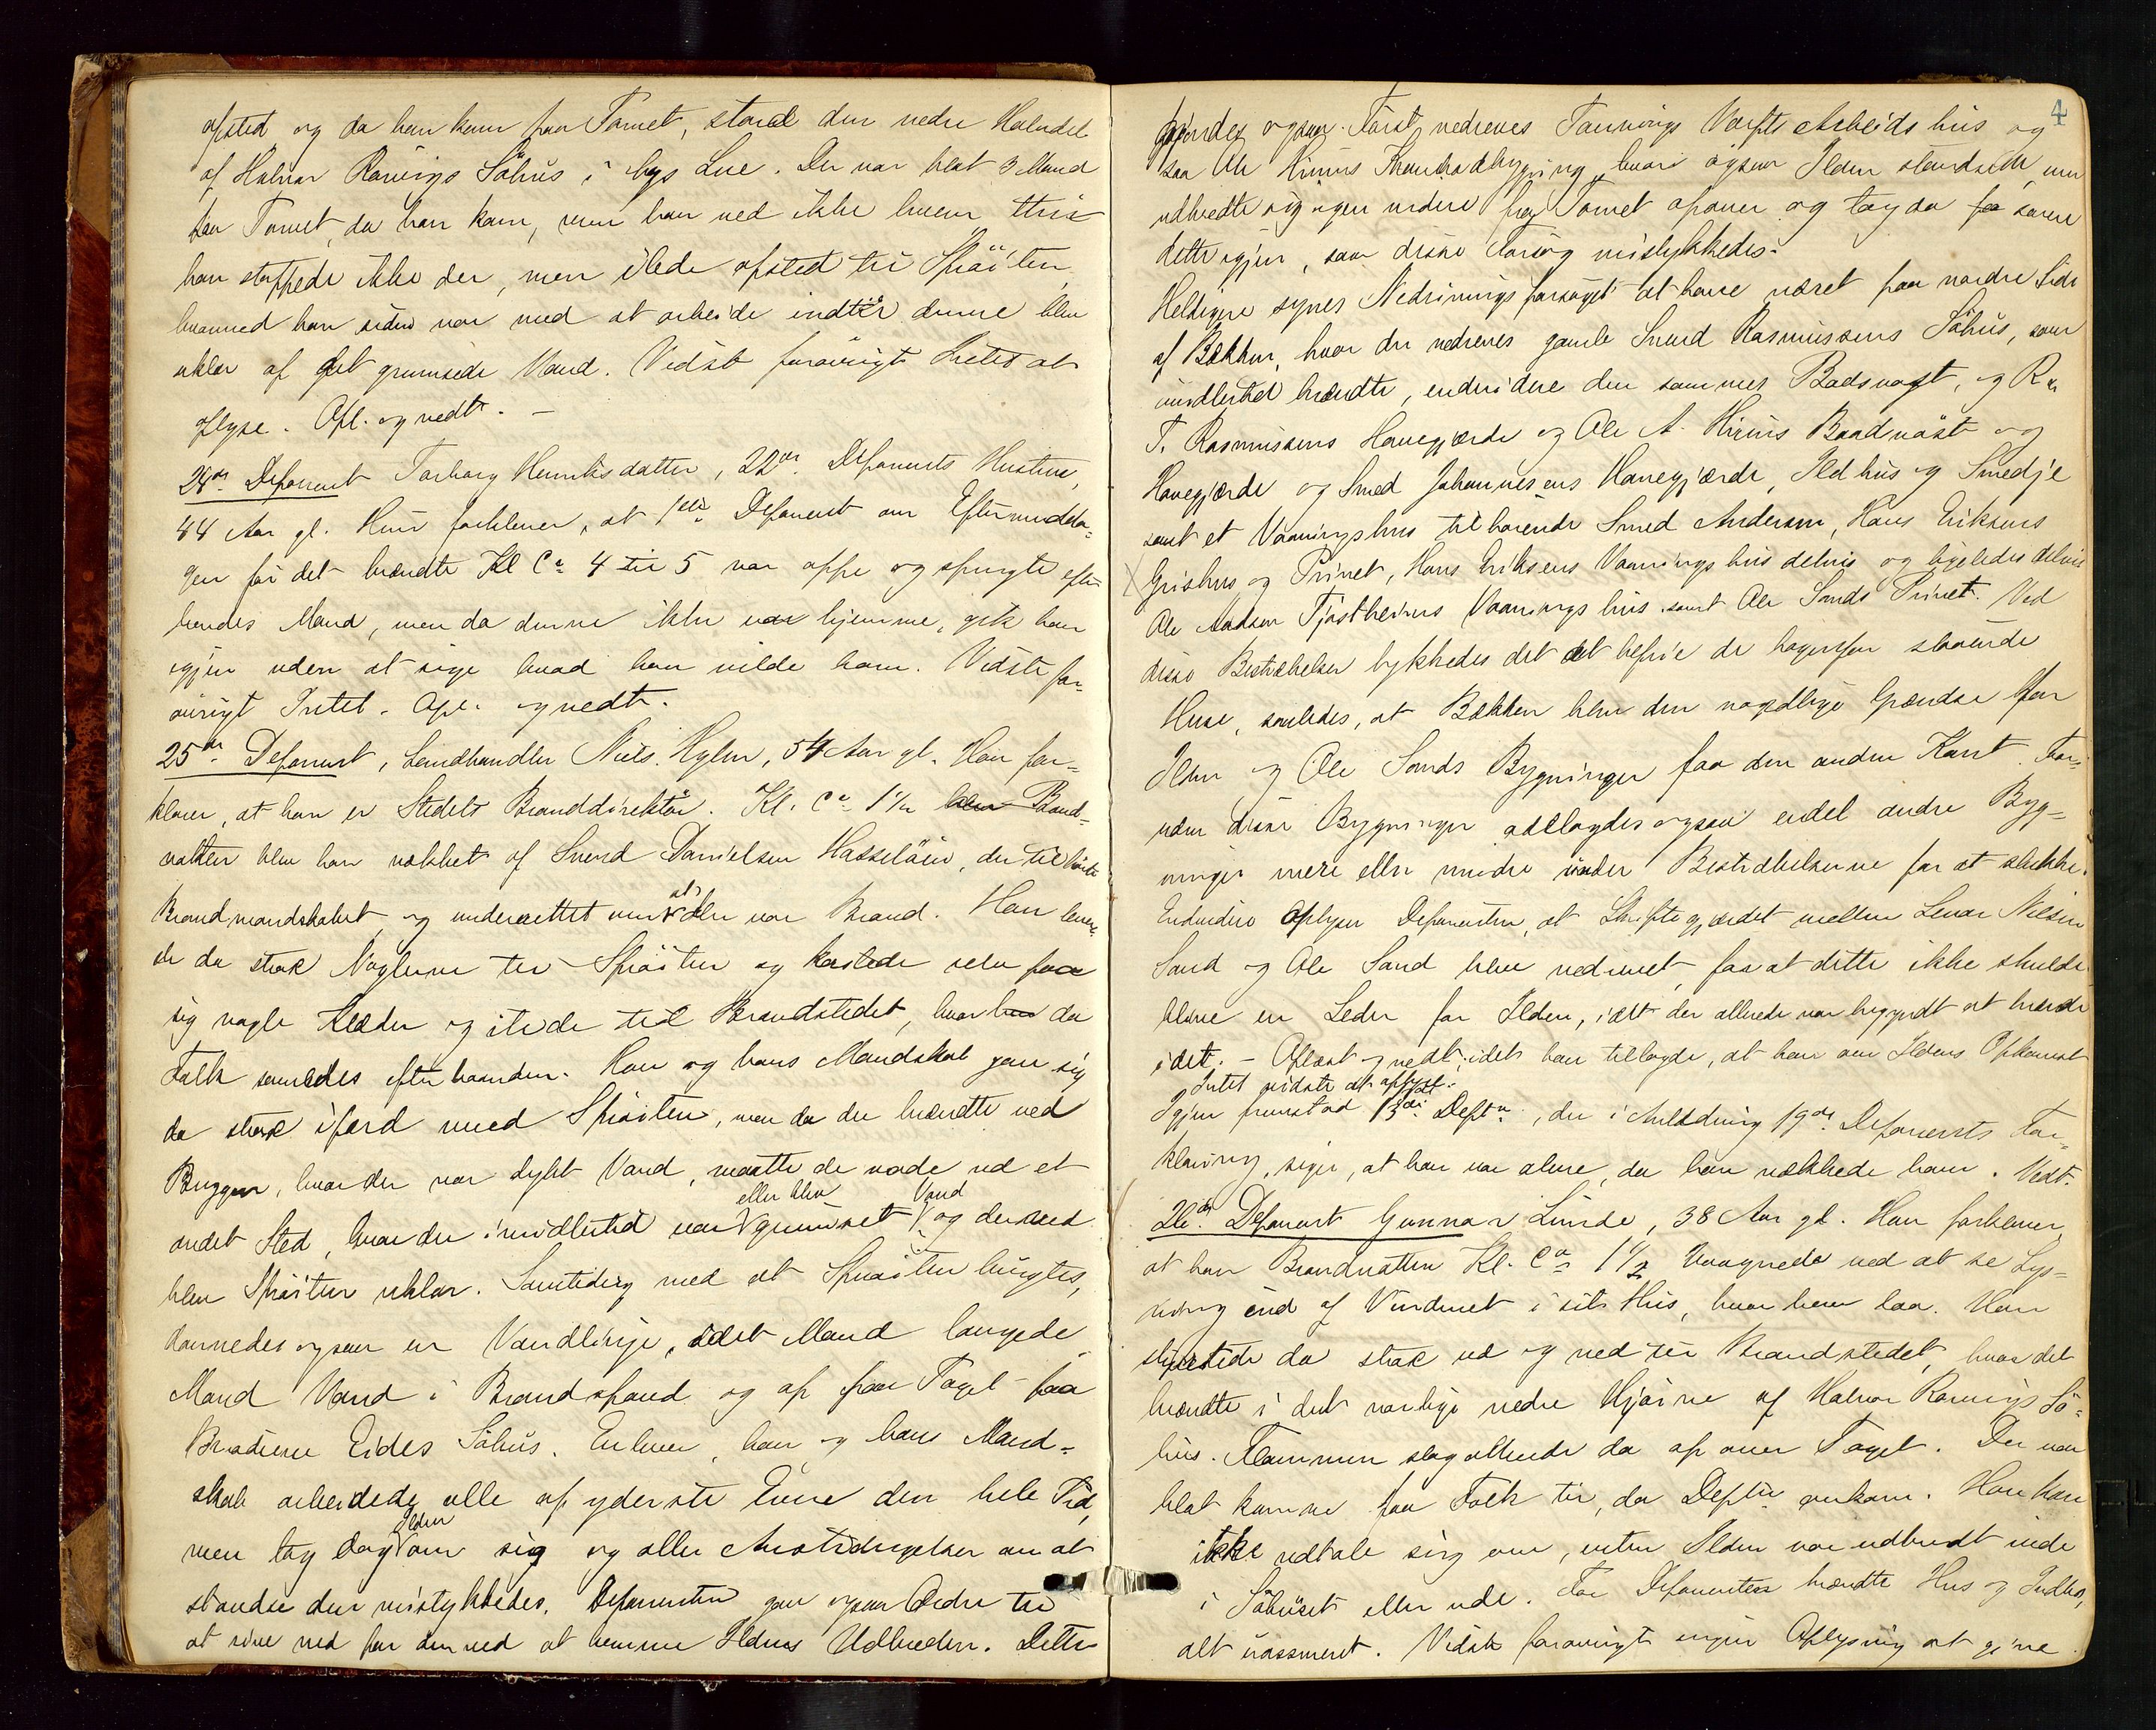 afsted og da han kom paa Torvet, stod den nedre Halvdel
af Halvar Rønnings Søhus i lys Lue. Der var blot 3 Mand
paa Torvet, da han kom, men han ved ikke hvem thi
han stoppede ikke der, men ilede afsted til Sprøiten
hvormed han siden var med at arbeide indtil denne blev
uklar af det grumsede Vand. Vidste forøvrigt Intet at
oplyse. Opl. og vedt. —
24de Deponent Torborg Henriksdatter, 22de Deponents Hustru,
44 Aar gl. Hun forklarer, at 1ste Deponent om Eftermidda-
gen før det brændte Kl Ca 4 til 5 var oppe og spurgte efter
hendes Mand, men da denne ikke var hjemme, gik han
igjen uden at sige hvad han vilde ham. Vidste for-
øvrigt Intet. Opl. og vedt.
25de Deponent, Landhandler Niels Nylen, 54 Aar gl. Han for-
klarer, at han er Stedets Branddirektør. Kl. Ca 1 1/2 blev Brand-
natten blev han vækket af Svend Danielsen Hasseløen, der tilhørte
Brandmandskabet og underrettet om at der var Brand. Han lever-
de da strax Nøglerne til Sprøiten og kastede selv paa
sig nogle Klæder og ilede til Brandstedet, hvor han da
Folk samledes efterhaanden. Han og hans Mandskab gav sig
da strax ifærd med Sprøiten, men da der brændte ved
Bryggen, hvor der var dybt Vand, maatte de vade ud et
andet Sted, hvor der imidlertid var eller blev grumset Vand og derved
blev Sprøiten uklar. Samtidig med at Sprøiten brugtes,
dannedes ogsaa en Vandlinje, idet Mand langede
Mand Vand i Brandspand og op paa Taget paa
Brødrene Eides Søhus. Enhver, han og hans Mand-
skab arbeidede alle af yderste Evne den hele Tid,
men tog dog Ilden om sig og alle Anstrengelser om at
standse den mislykkedes. Deponenten gav ogsaa Ordre til
at rive ned for dermed at hemme Ildens Udbreden. Dette
4
gjordes ogsaa. Først nedreves Tønnings Værfts Arbeidshus og
saa Ole Hinnes bygning, hvori ogsaa Ilden standsede, men
udbredte sig igjen videre fra Torvet opover og tog da fa varere
dette igjen, saa disse Forsøg mislykkedes.
Heldigere synes Nedrivningsforsøget at have været paa nordre Side
af Bækken, hvor der nedreves gamle Svend Rasmussens Søhus, som
imidlertid brændte, endvidere den sammes Baadnøst, og R.
T. Rasmussens Havegjærde og Ole A. Hinnes Baadnøst og
Havegjærde og Smed Johannesens Havegjærde, Ildhus og Smedje
samt et Vaaningshus tilhørende Smed Andersen, Hans Eriksens
Grishus og Privet, Hans Eriksens Vaaningshus delvis og ligeledes delvis
Ole Aadsen Tjøstheims Vaaningshus samt Ole Sands Privet. Ved
disse Bestræbelser lykkedes det at befrie de bagenfor staaende
Huse, saaledes, at Bækken blev den nordlige Grændse for
Ilden og Ole Sands Bygninger paa den anden Kant. For-
uden disse Bygninger ødelagdes ogsaa endel andre Byg-
ninger mere eller mindre under Bestræbelserne for at slukke.
Endvidere oplyser Deponenten, at Skiftegjærdet mellem Lenar Nilsen
Sand og Ole Sand blev nedrevet, for at dette ikke skulde
blive en Leder for Ilden, idet der allerede var begyndt at brænde
i det. — Oplæst og vedt. idet han tillagde, at han om Ildens Opkomst
Intet vidste at oplyse.
Igjen fremstod 13de Deptn, der i Anledning 19de Deponents For-
klaring, siger, at han var alene, da han vækkede ham. Vedt.
26de Deponent Gunnar Linde, 38 Aar gl. Han forklarer
at han Brandnatten Kl. Ca 1 1/2 vaagnede ved at se Lys-
ning ind af Vinduet i sit Hus, hvor han laa. Han
styrtede da strax ud og ned til Brandstedet, hvor det
brændte i det nordlige nedre Hjørne af Halvor Rønnings Sø-
hus. Flammen slog allerede da op over Taget. Der var
blot komne faa Folk til, da Deptn ankom. Han kan
ikke udtale sig om, enten Ilden var udbrudt inde
i Søhuset eller ude. For Deponenten brændte Hus og Indbo,
alt uassureret. Vidste forøvrigt ingen Oplysning at give